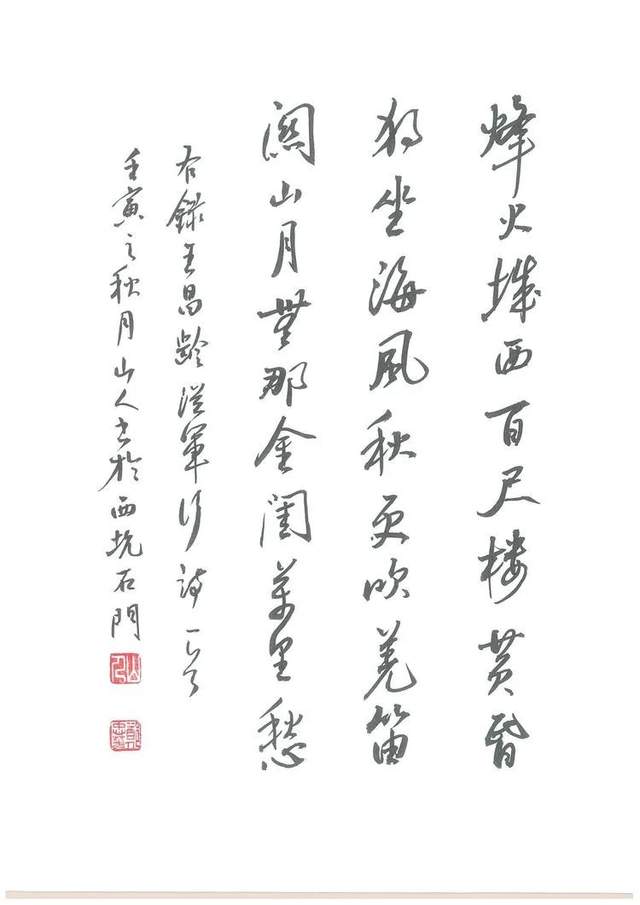 烽火城西百尺楼黄昏
独坐海風秋更吹羌笛
關山月無那金閨萬里愁
右録王昌齡從軍行詩一首
壬寅之秋月山人书於西坑石門
山人